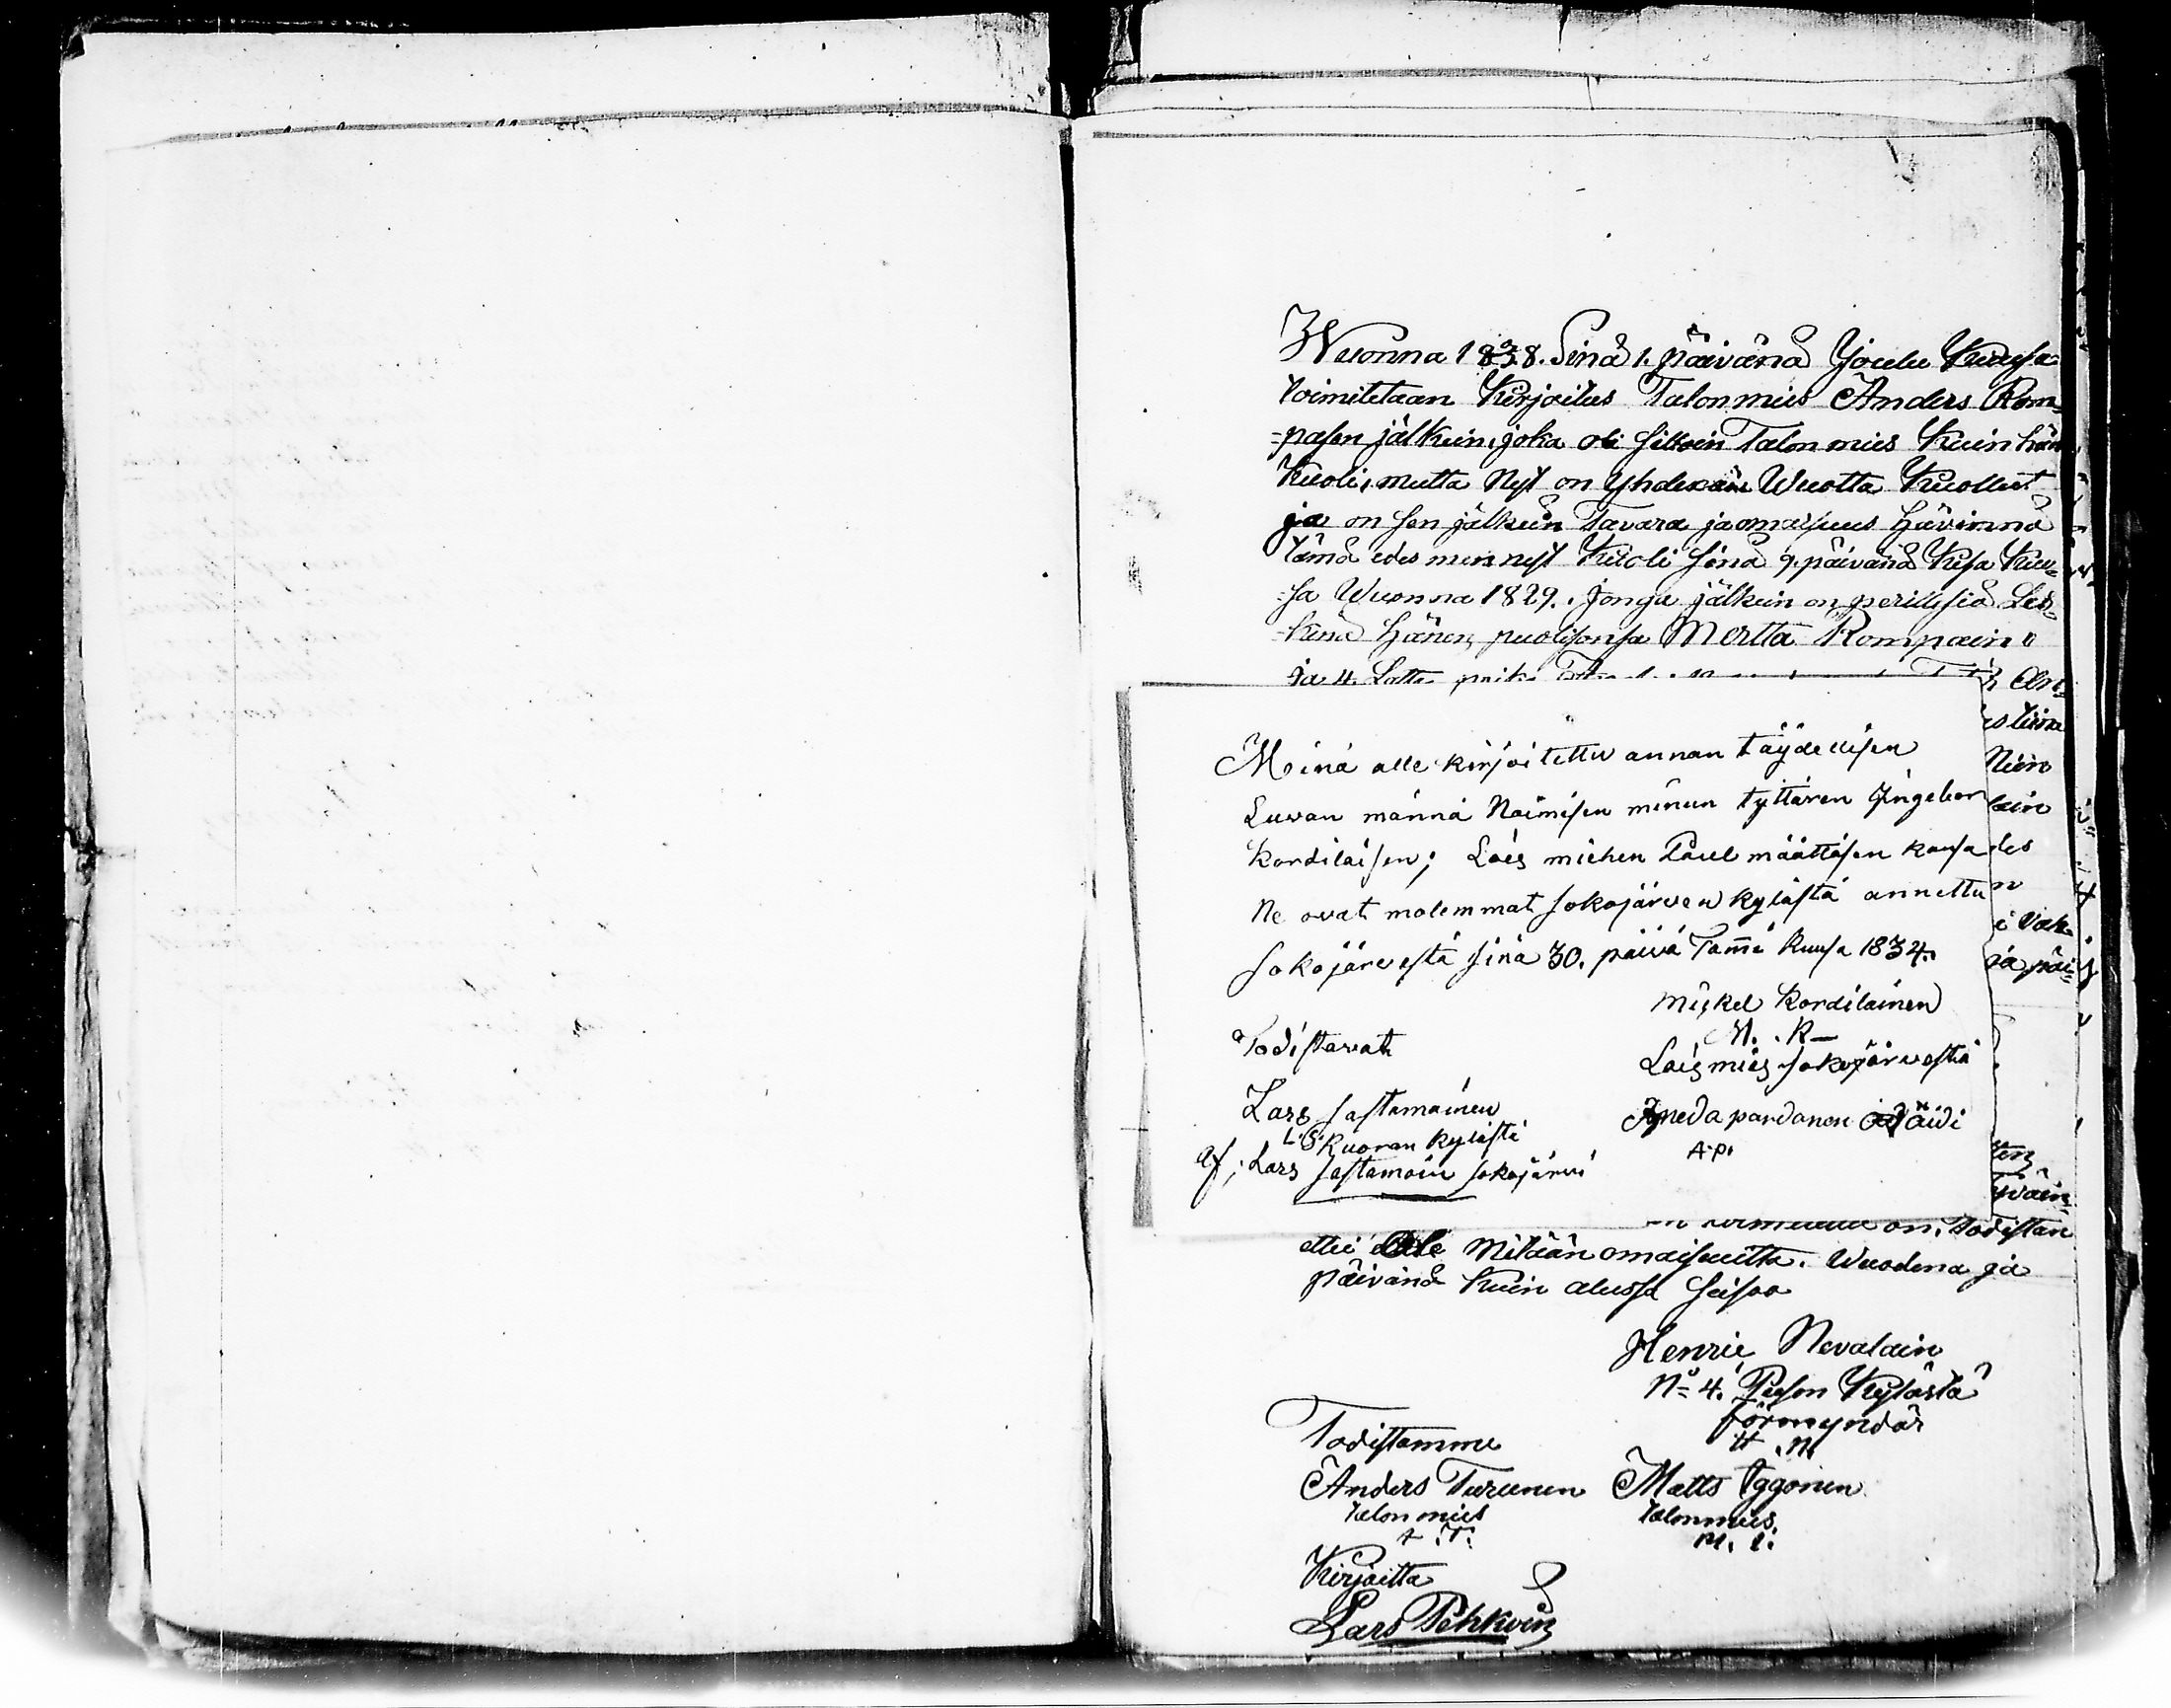 Wuonna 1838. Sinä 1. päivänä Joulu Kuusa
toimitetaan Kirjoitus Talonmies Anders Rom=
=pasen jälkein, joka oli silloin Talonmies Kuin hän
Kuoli, mutta Nyt on Yhdexän Wuotta Kuollut
ja on sen jälkein Tavara ja omaisuus Hävinnä
tämä edes mennyt Kuoli sinä 9. päivänä Kesä Kuu=
=sa Wuonna 1829. Jonga jälkein on perillisiä Les=
=kenä Hänen puolisonsa Mertta Rompain
ja 4. Lasta
An=
Niin
lain
des
n
i Vak
nä päi=
Minä alle kirjoitettu annan täydellisen
Luvan männä Naimisen minun tyttären Jngebor
Kordilaisen; Lois miehen Påul määttäsen kansa
Ne ovat molemmat sokojärven kylästä annettu
sokojärvestä sinä 30. päivä Tam̄i kuusa 1834.
Mickel Kordilainen
M. K—
Loismies sokojärvestä
Todistavat
Lars sastamainen
L. S. Kuoran kylästä
af; Lars sastamoin sokojärvi
Agneda pardanen äidi
A. P.
on, todistan
ettei Ole Mitään omaisuitta. Wuodena ja
päivänä Kuin alussa seisoo
Henric Nevalain
No 4. Puson Kylästä
förmyndär
H. N.
Todistamme
Anders Turunen
talonmies
A. T.
Matts Iggonen
talonmies
M. I.
Kirjoitta
Lars Pehkoin